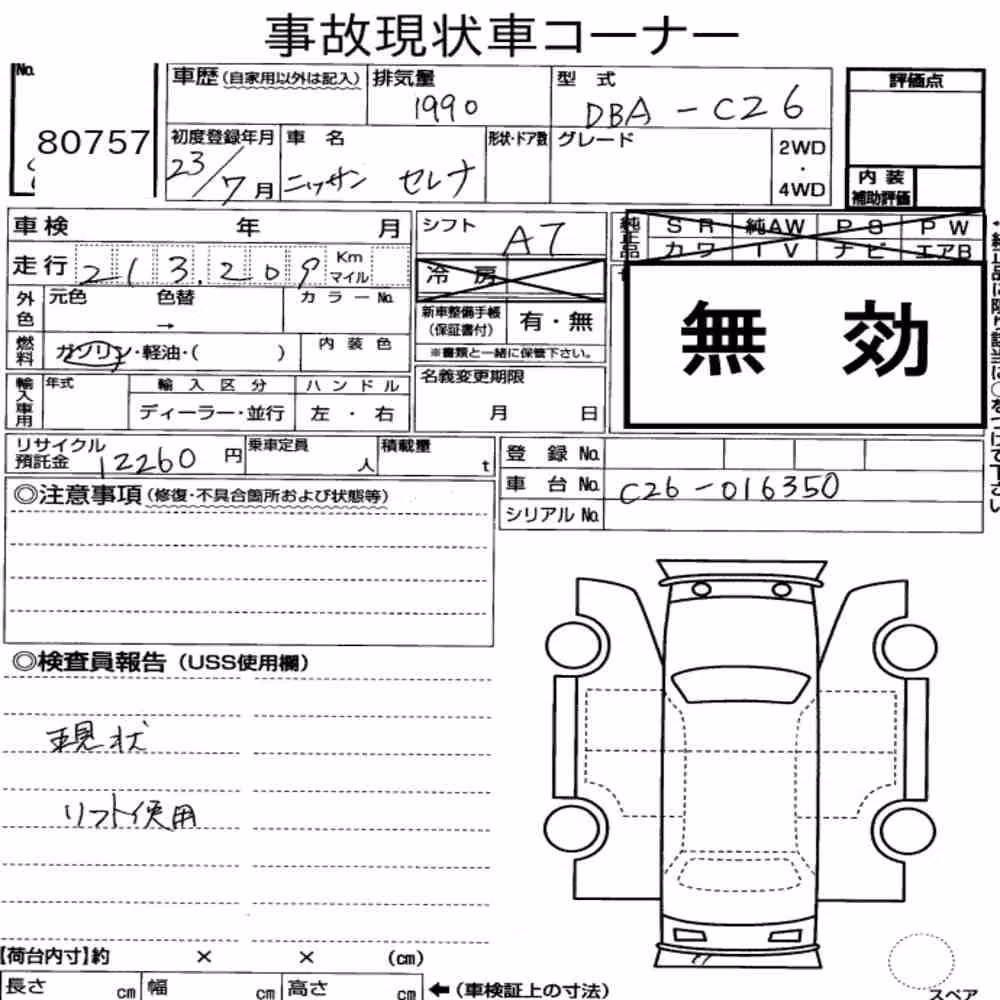 事故現状車コーナー
No. 80757
車歴(自家用以外は記入) 排気量 1990 型式 DBA-C26 評価点
初度登録年月 23/7月 車名 ニッサン セレナ 形状・ドア数 グレード 2WD・4WD
内装補助評価
車検 年 月 シフト AT 純正品 SR 純AW PS PW
走行 213,209 Km マイル 冷房 カワ TV ナビ エアB
外色 元色 色替 → カラーNo. 新車整備手帳(保証書付) 有・無
無効
燃料 ガソリン・軽油・( ) 内装色 ※書類と一緒に保管下さい。
輸入車用 年式 輸入区分 ハンドル 名義変更期限
ディーラー・並行 左・右 月 日
リサイクル預託金 12260円 乗車定員 人 積載量 t 登録No.
車台No. C26-016350
◎注意事項(修復・不具合箇所および状態等) シリアルNo.
◎検査員報告(USS使用欄)
現状
リフト使用
【荷台内寸】約 × × (cm)
長さ cm 幅 cm 高さ cm ←(車検証上の寸法)
スペア